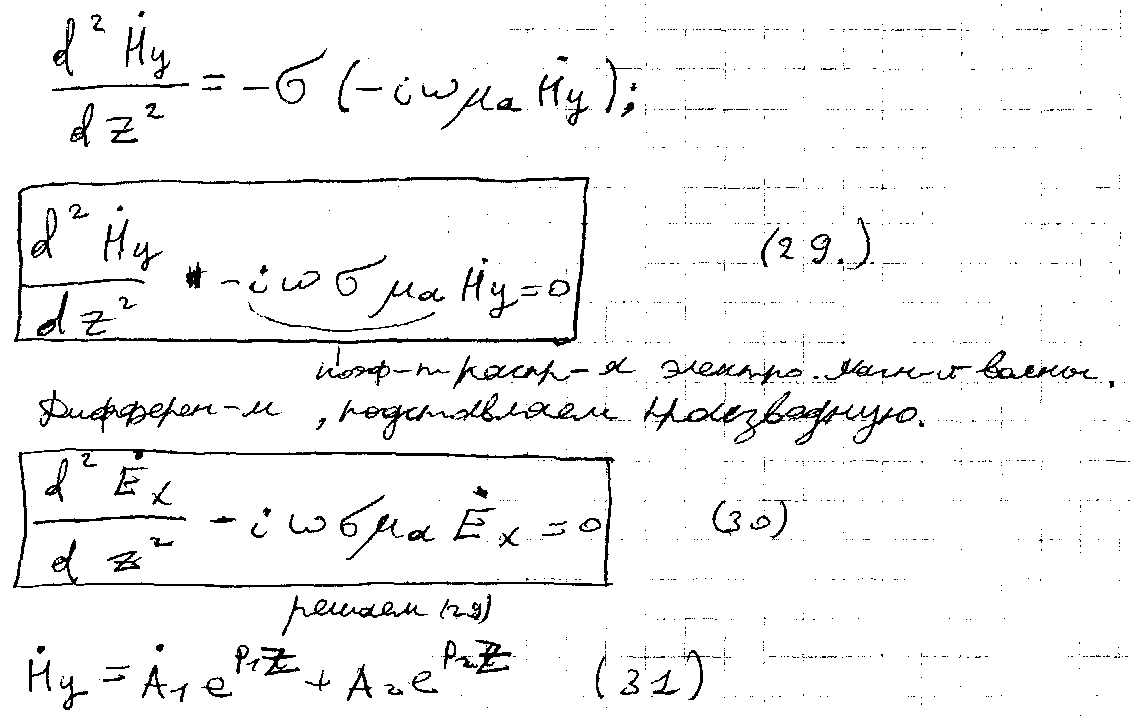 d² Ḣy / dz² = -σ (-iωμa Ḣy);
d² Ḣy / dz² - iωσμa Ḣy = 0 (29.)
коэф-т распр-я электро.магн-й волны.
Дифферен-м, подставляем производную.
d² Ėx / dz² - iωσμa Ėx = 0 (30)
решаем (29)
Ḣy = Ȧ₁e^{p₁z} + A₂e^{p₂z} (31)